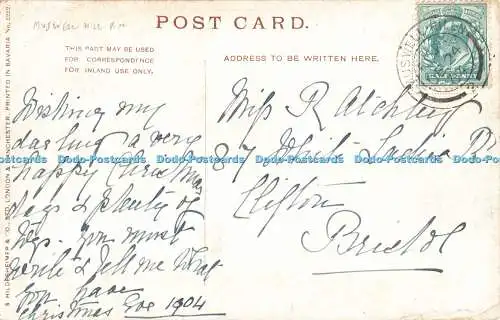 Muswell Hill
POST CARD.
THIS PART MAY BE USED
FOR CORRESPONDENCE
FOR INLAND USE ONLY.
ADDRESS TO BE WRITTEN HERE.
S. HILDESHEIMER & CO., LTD. LONDON & MANCHESTER. PRINTED IN BAVARIA No.
MUSWELL HILL
HALFPENNY
Wishing my
darling a very
happy Christmas
lots & plenty of
toys. You must
write & tell me what
you have
Christmas Eve 1904
Miss R Atchley
87 White Ladies Rd
Clifton
Bristol
Dodo-Postcards Dodo-Postcards Dodo-Postcards Dodo-Postcards Dodo-Postcards